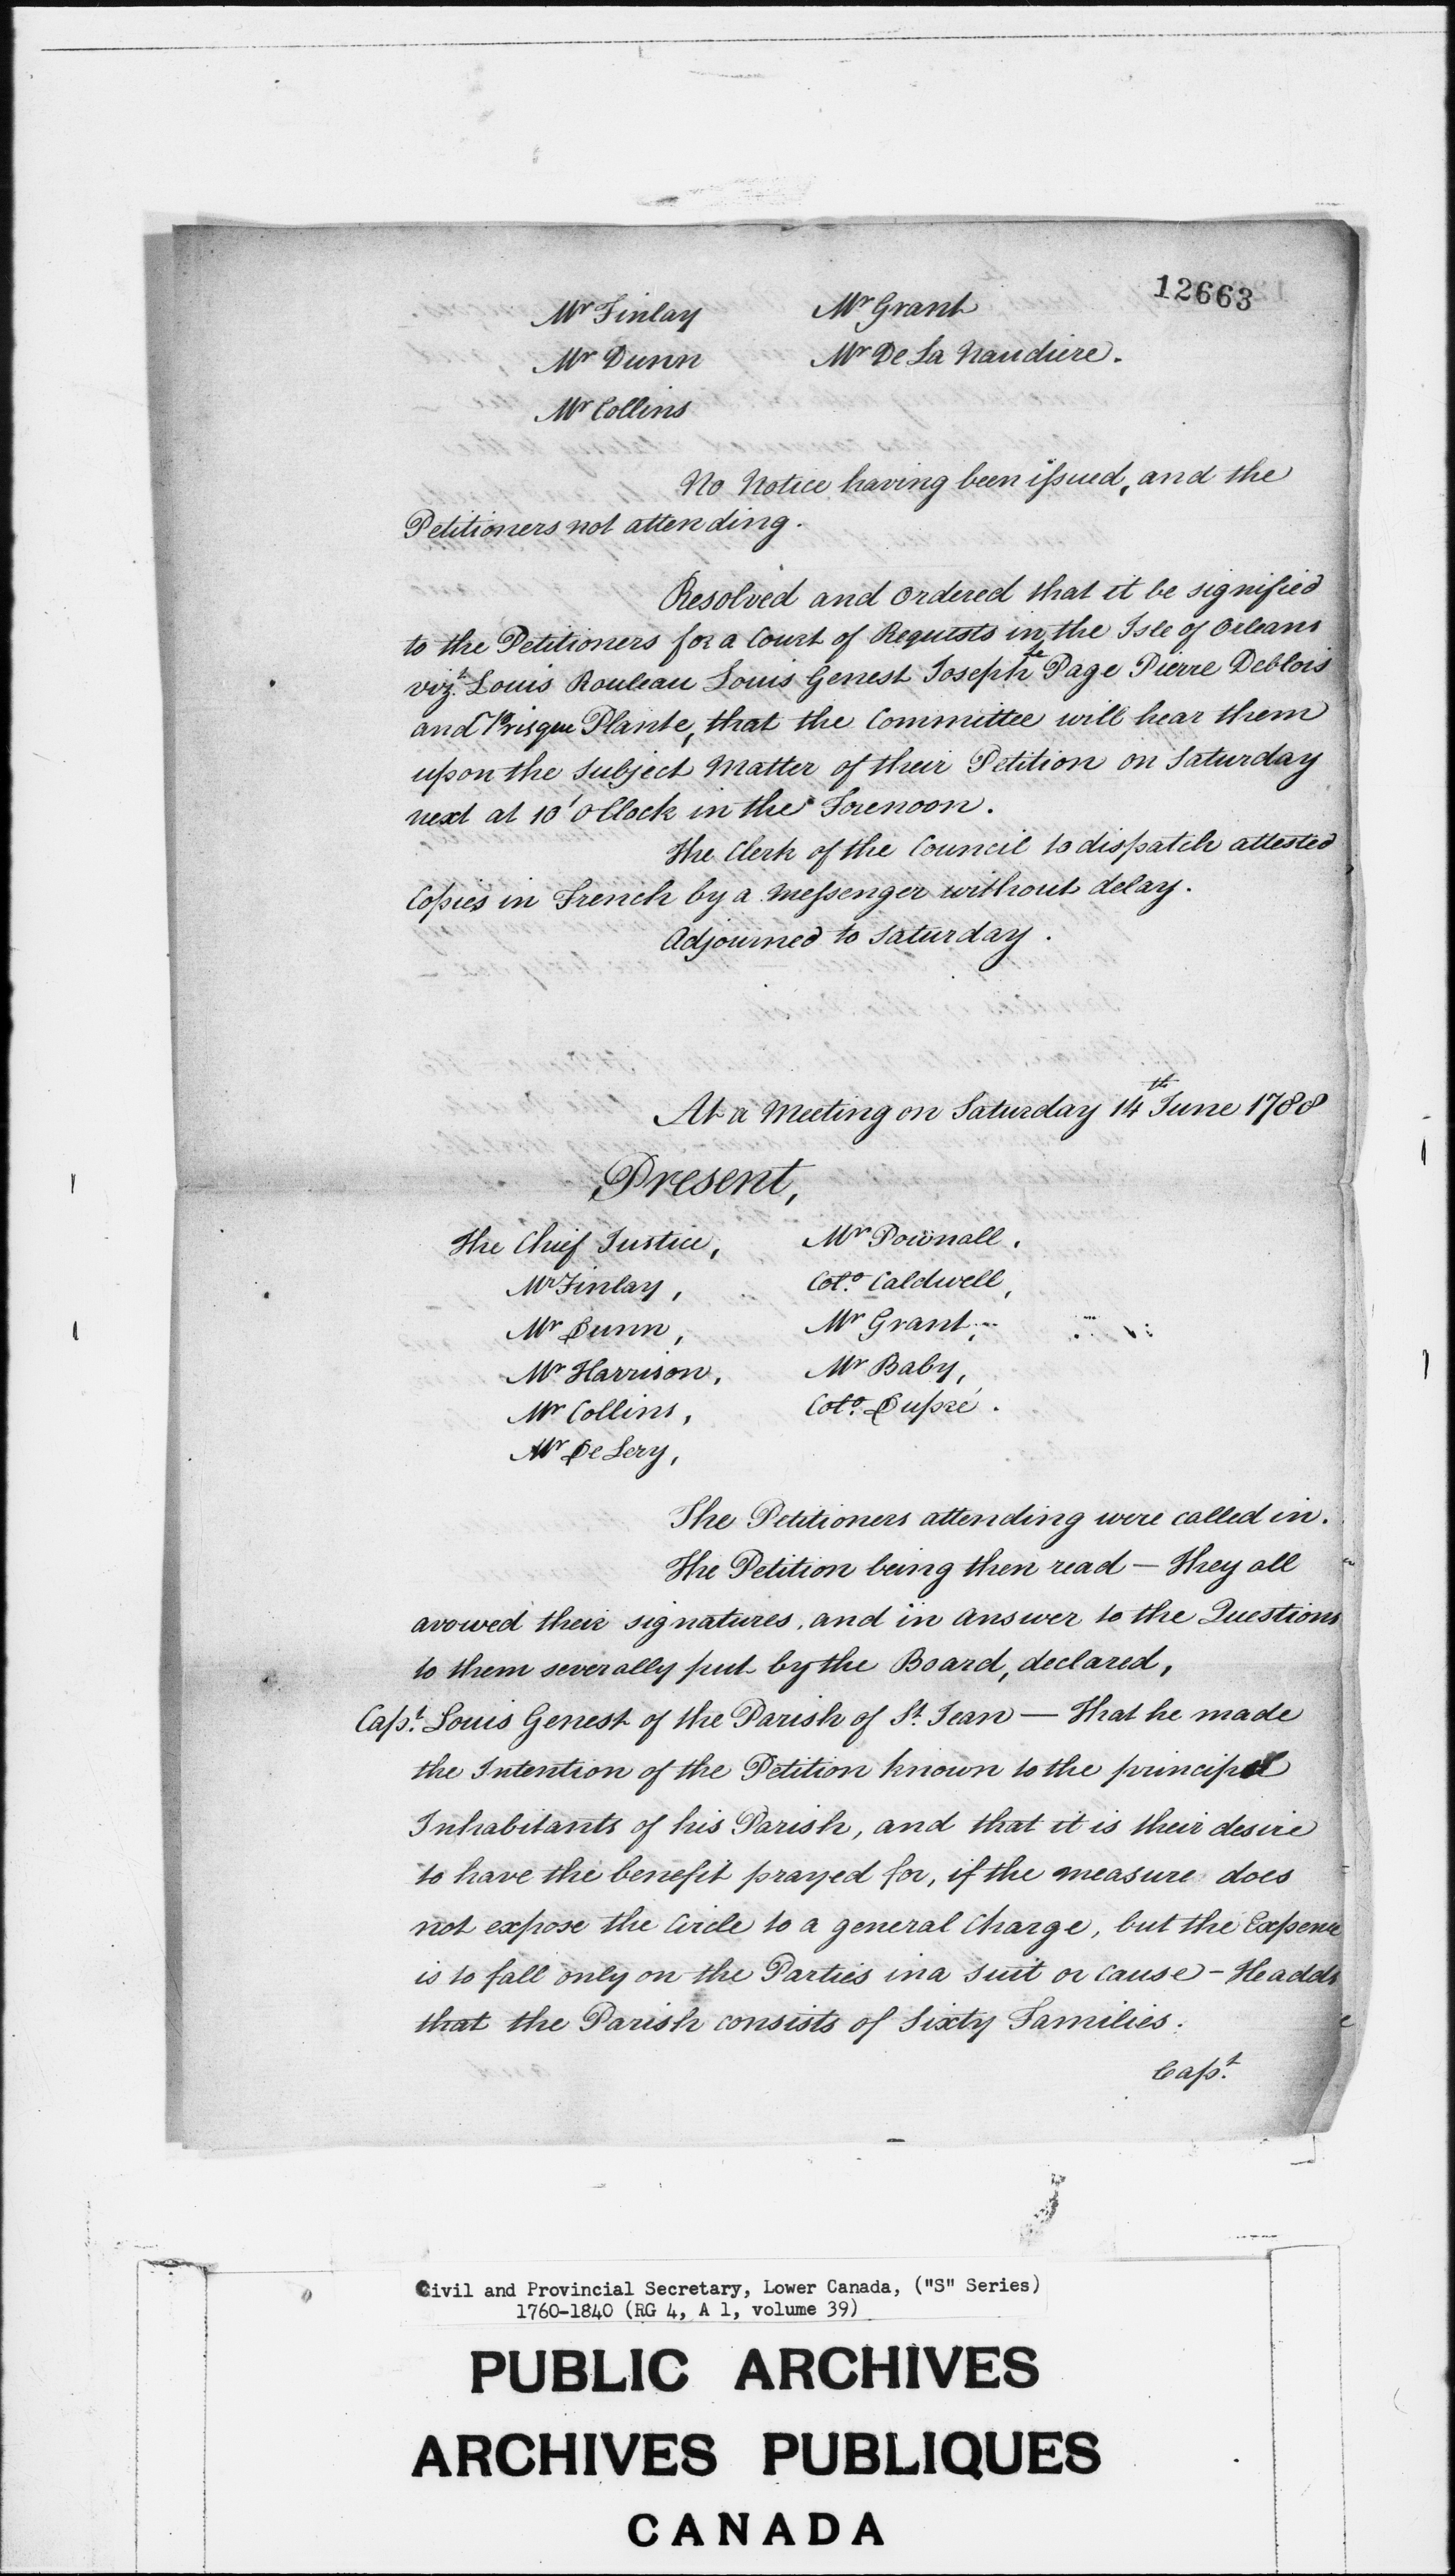 12663
Mr Finlay Mr Grant
Mr Dunn Mr De La Naudiere.
Mr Collins
No Notice having been issued, and the
Petitioners not attending.
Resolved and Ordered that it be signified
to the Petitioners for a Court of Requests in the Isle of Orleans
vizt. Louis Rouleau Louis Genest Joseph le Page Pierre Deblois
and Prisque Plante, that the Committee will hear them
upon the Subject Matter of their Petition on Saturday
next at 10' O Clock in the Forenoon.
The Clerk of the Council to dispatch attested
Copies in French by a Messenger without delay.
Adjourned to Saturday.
At a Meeting on Saturday 14th June 1788
Present,
The Chief Justice, Mr Pownall,
Mr Finlay, Colo. Caldwell,
Mr Dunn, Mr Grant,
Mr Harrison, Mr Baby,
Mr Collins, Colo. Dupré.
Mr De Lery,
The Petitioners attending were called in.
The Petition being then read — They all
avowed their signatures, and in answer to the Questions
to them severally put by the Board, declared,
Capt. Louis Genest of the Parish of St. Jean — That he made
the Intention of the Petition known to the principal
Inhabitants of his Parish, and that it is their desire
to have the benefit prayed for, if the measure does
not expose the Circle to a general Charge, but the Expence
is to fall only on the Parties in a suit or cause - He adds
that the Parish consists of Sixty Families.
Capt.
Civil and Provincial Secretary, Lower Canada, ("S" Series)
1760-1840 (RG 4, A 1, volume 39)
PUBLIC ARCHIVES
ARCHIVES PUBLIQUES
CANADA